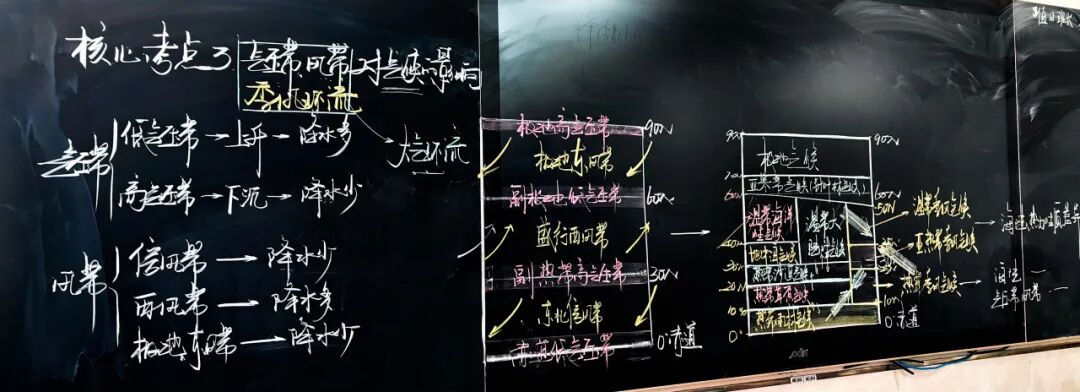 核心考点3 气压带风带对气候的影响
季风环流
大气环流
气压带
低气压带→上升→降水多
高气压带→下沉→降水少
风带
信风带→降水少
西风带→降水多
极地东风带→降水少
极地高气压带 90N
极地东风带
副极地低气压带 60N
盛行西风带
副热带高气压带 30N
东北信风带
赤道低气压带 0°赤道
90N 极地气候 90N
亚寒带气候(针叶林气候)
60N 60N
50N
温带海洋性气候
温带大陆性气候
地中海气候
热带沙漠气候
热带草原气候
热带雨林气候
20N
10N
0° 0°赤道
温带季风气候
亚热带季风气候
热带季风气候
海陆热力性质差异
海陆
气压带风带
值日班长